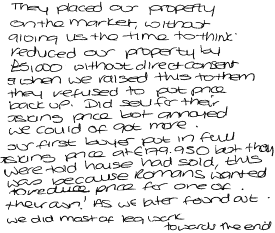 They placed our property
on the market, without
giving us the time to think.
reduced our property by
£5,000 without direct consent
& when we raised this to them
they refused to put price
back up. Did sell for their
asking price but annoyed
we could of got more.
our first buyer put in full
asking price at £199.950 but they
were told house had sold, this
was because Romans wanted
to reduce price for one of
their own! As we later found out.
we did most of leg work
towards the end!